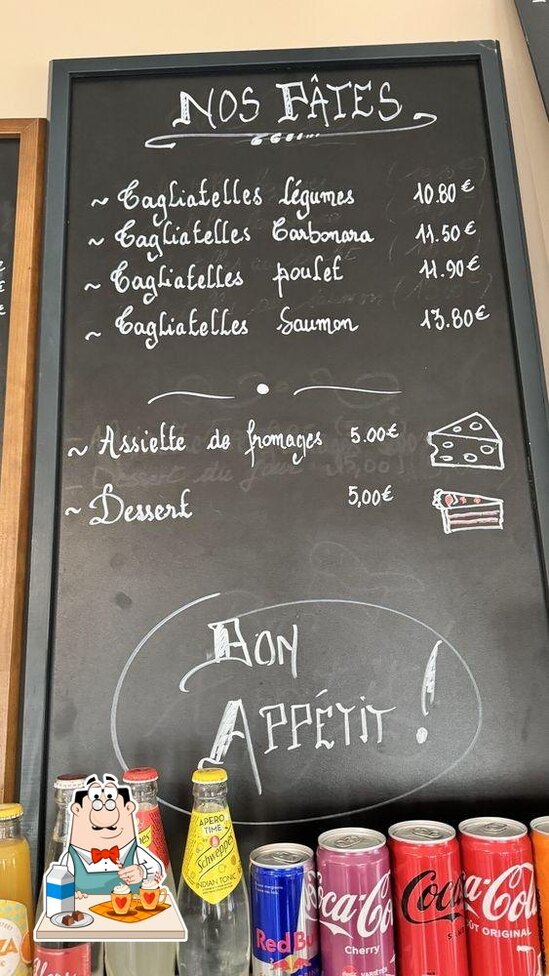 NOS PÂTES
~ Tagliatelles légumes 10.80€
~ Tagliatelles Carbonara 11.50€
~ Tagliatelles poulet 11.90€
~ Tagliatelles Saumon 13.80€
~ Assiette de fromages 5.00€
~ Dessert 5,00€
BON
APPÉTIT !
APERO
TIME
Schweppes
INDIAN TONIC
Red Bu
Coca-Co
Cherry
Coca-Cola
GOÛT ORIGINAL